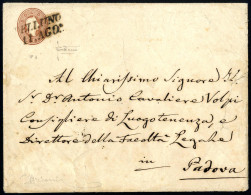 BELLUNO
11 AGO.
Al Chiarissimo Signore Il
Sr. Dr. Antonio Cavaliere Volpi
Consigliere di Luogotenenza e
Direttore della Facoltà Legale
in
Padova